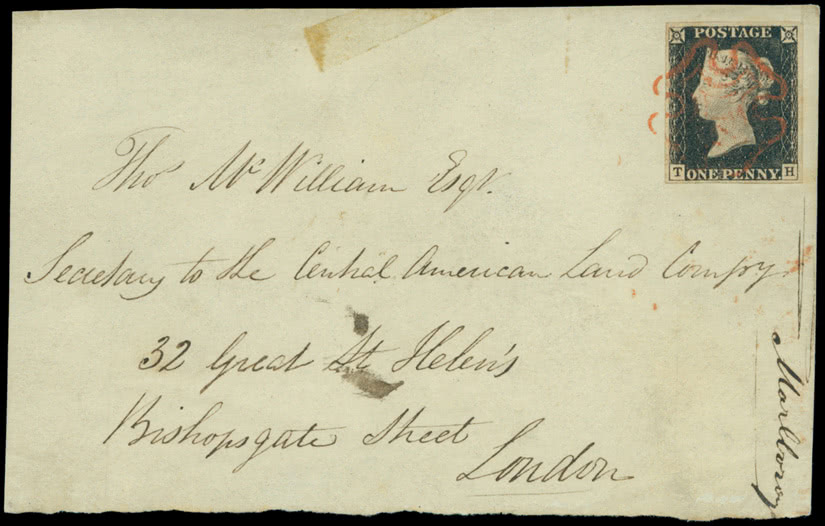 POSTAGE
T ONE PENNY H
Thos McWilliam Esqr.
Secretary to the Central American Land Compy.
32 Great St Helen's
Bishopsgate Street
London